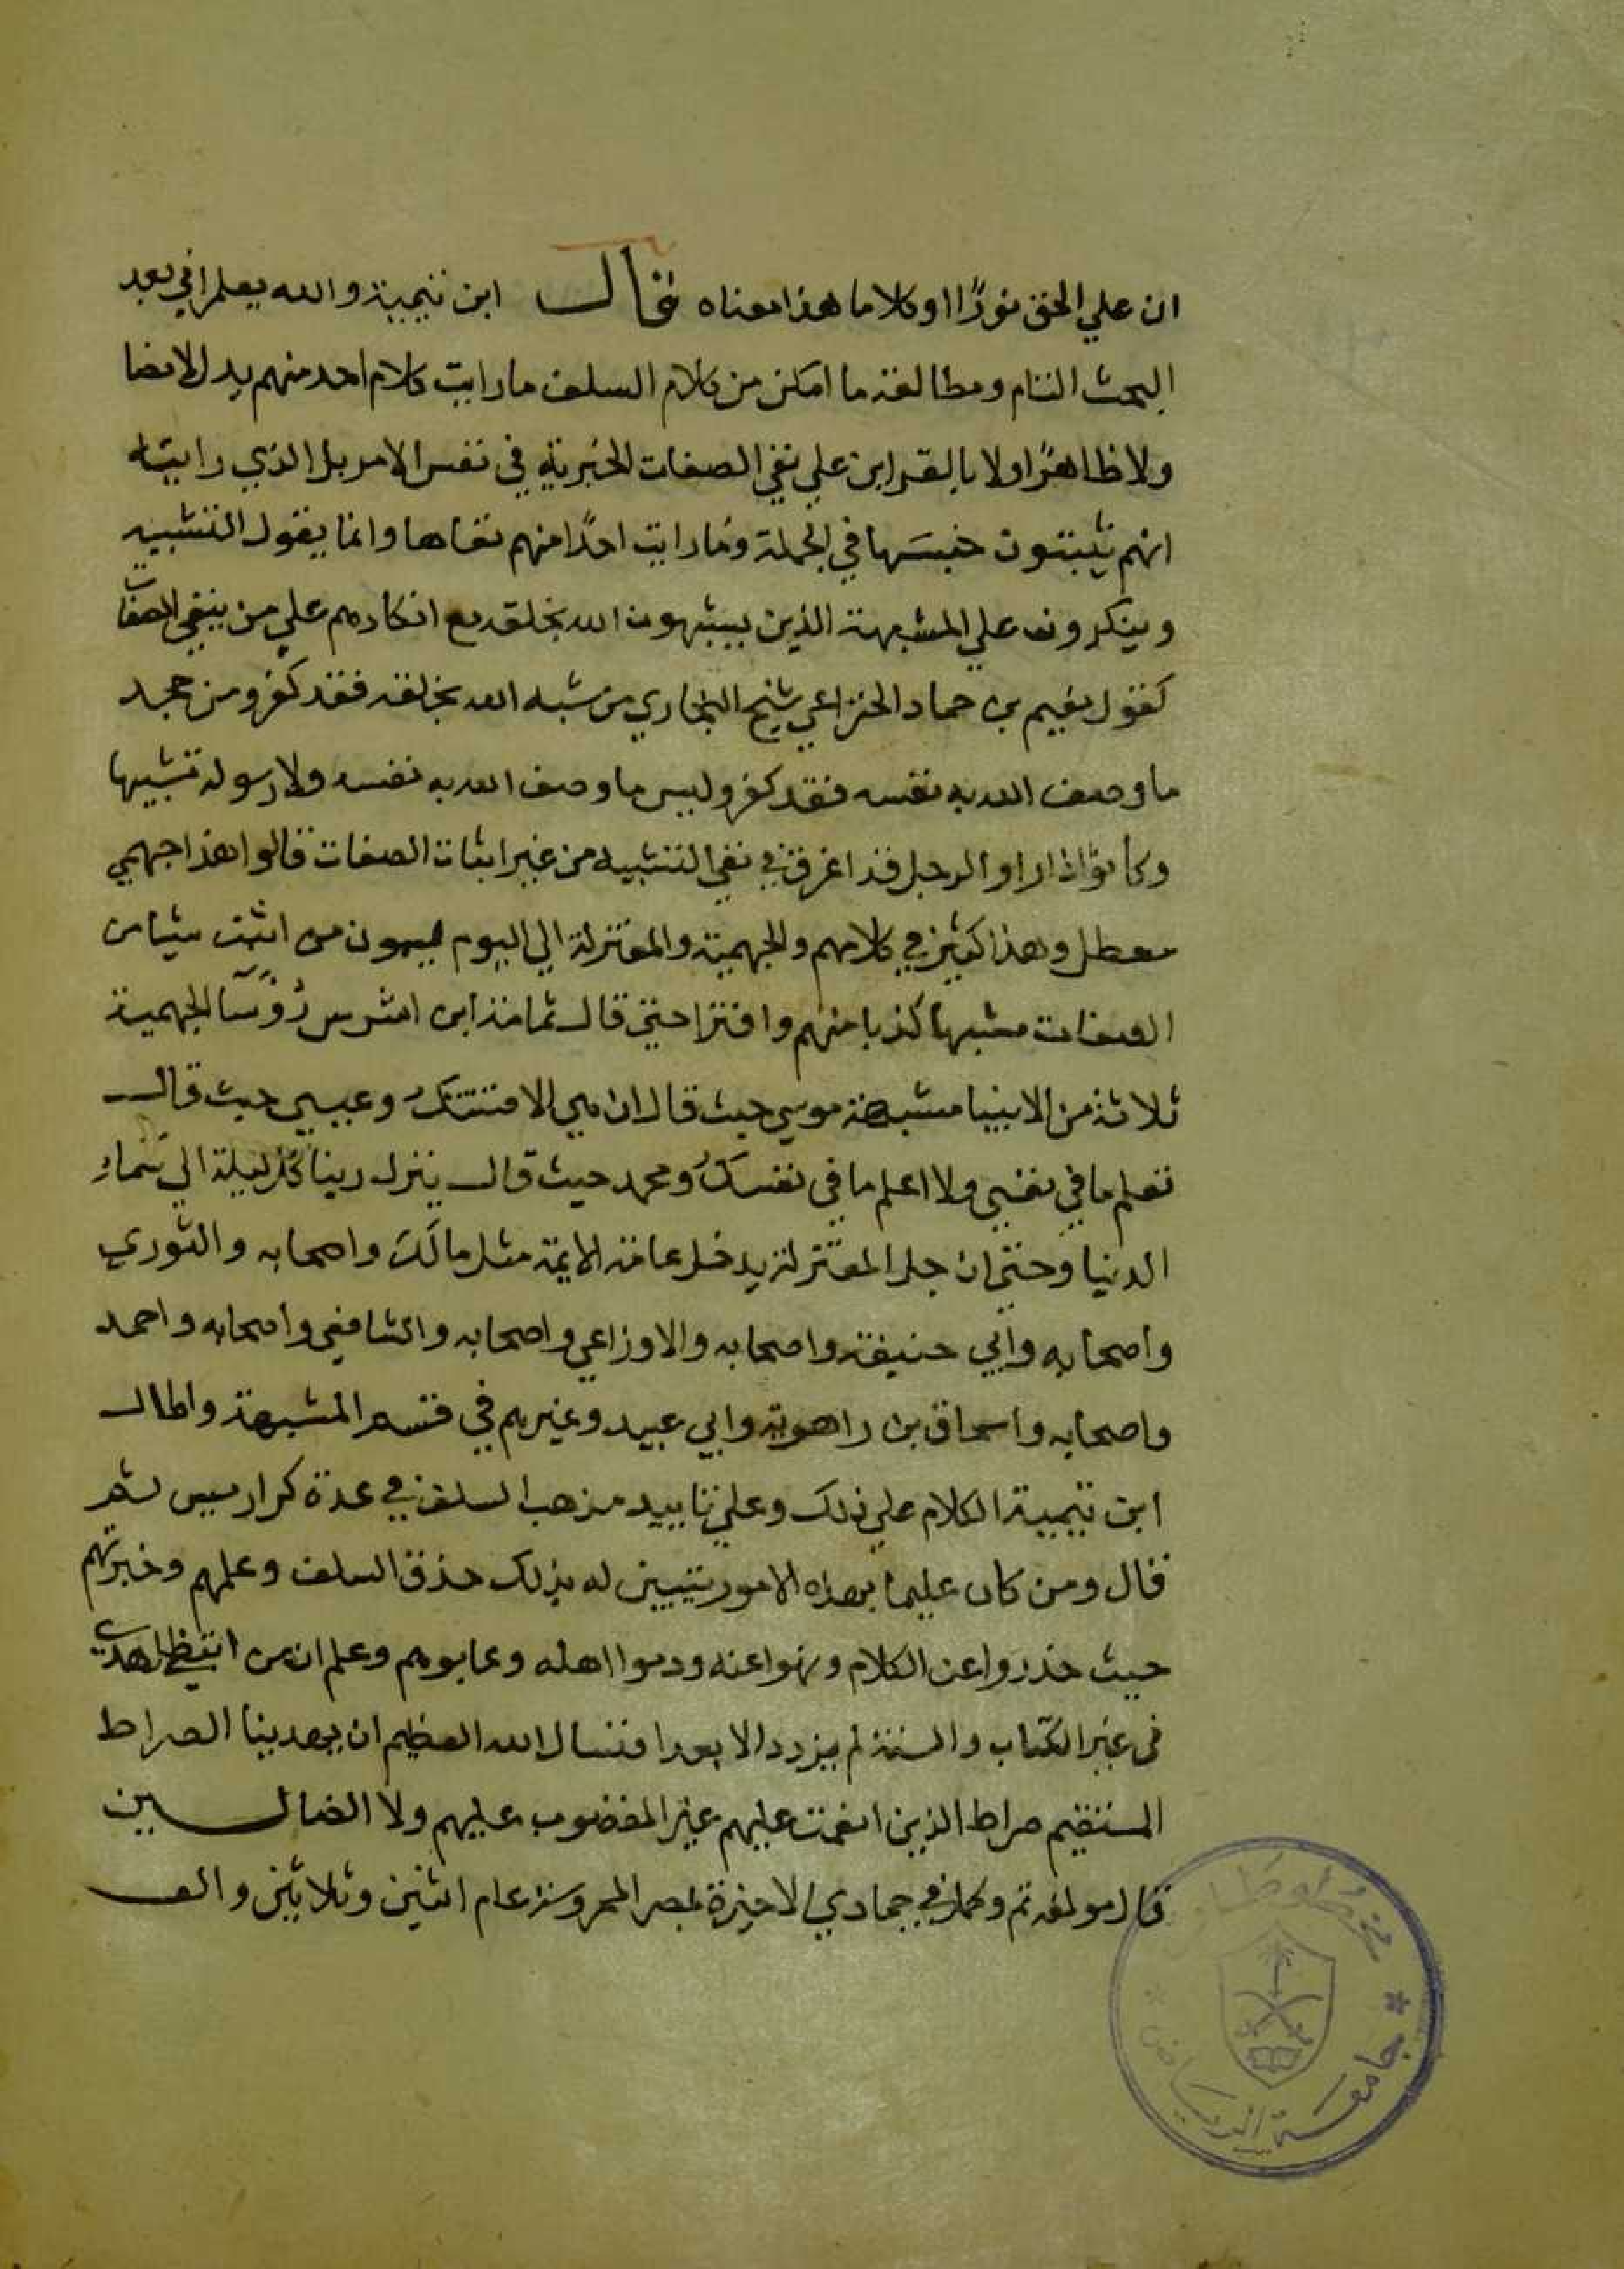 ان علي الحق نورًا اوكلاما هذا معناه قال ابن تيمية والله يعلم اني بعد
البحث التام ومطالعة ما امكن من كلام السلف ما رايت كلام احد منهم يدل لا نصا
ولا ظاهرًا ولا بالقراين علي نفي الصفات الخبرية في نفس الامر بل الذي رايته
انهم يثبتون جنسها في الجملة وما رايت احدًا منهم نفاها وانما يقول التشبيه
وينكرون علي المشبهة الذين يشبهون الله بخلقه مع انكارهم علي من ينفي الصفات
كقول نعيم بن حماد الخزاعي شيخ البخاري من شبه الله بخلقه فقد كفر ومن جحد
ما وصف الله به نفسه فقد كفر وليس ما وصف الله به نفسه ولا رسوله تشبيها
وكانوا اذا راو الرجل قد اغرق في نفي التشبيه من غير اثبات الصفات قالوا هذا جهمي
معطل وهذا كثير في كلامهم والجهمية والمعتزلة الي اليوم يسمون من اثبت شيا من
الصفات مشبها كذبا منهم وافترا حتي قال ثمامة ابن اشرس رؤسآ الجهمية
ثلاثة من الانبيا مشبهة موسي حيث قال ان هي الا فتنتك وعيسي حيث قال
تعلم ما في نفسي ولا اعلم ما في نفسك ومحمد حيث قال ينزل ربنا كل ليلة الي سماء
الدنيا وحتي ان جل المعتزلة يدخل عامة الايمة مثل مالك واصحابه والثوري
واصحابه وابي حنيفة واصحابه والاوزاعي واصحابه والشافعي واصحابه واحمد
واصحابه واسحاق بن راهويه وابي عبيد وغيرهم في قسم المشبهة واطال
ابن تيمية الكلام علي ذلك وعلي تاييد مذهب السلف في عدة كراريس ثم
قال ومن كان عليما بهذه الامور يتبين له بذلك حذق السلف وعلمهم وخبرتهم
حيث حذروا عن الكلام ونهوا عنه وذموا اهله وعابوهم وعلم ان من ابتغي الهدي
في غير الكتاب والسنة لم يزدد الا بعدا فنسال الله العظيم ان يهدينا الصراط
المستقيم صراط الذين انعمت عليهم غير المغضوب عليهم ولا الضالين
قال مولفه تم وكمل في جمادي الاخيرة بمصر المحروسة عام اثنين وثلاثين والف
جامعة الرياض